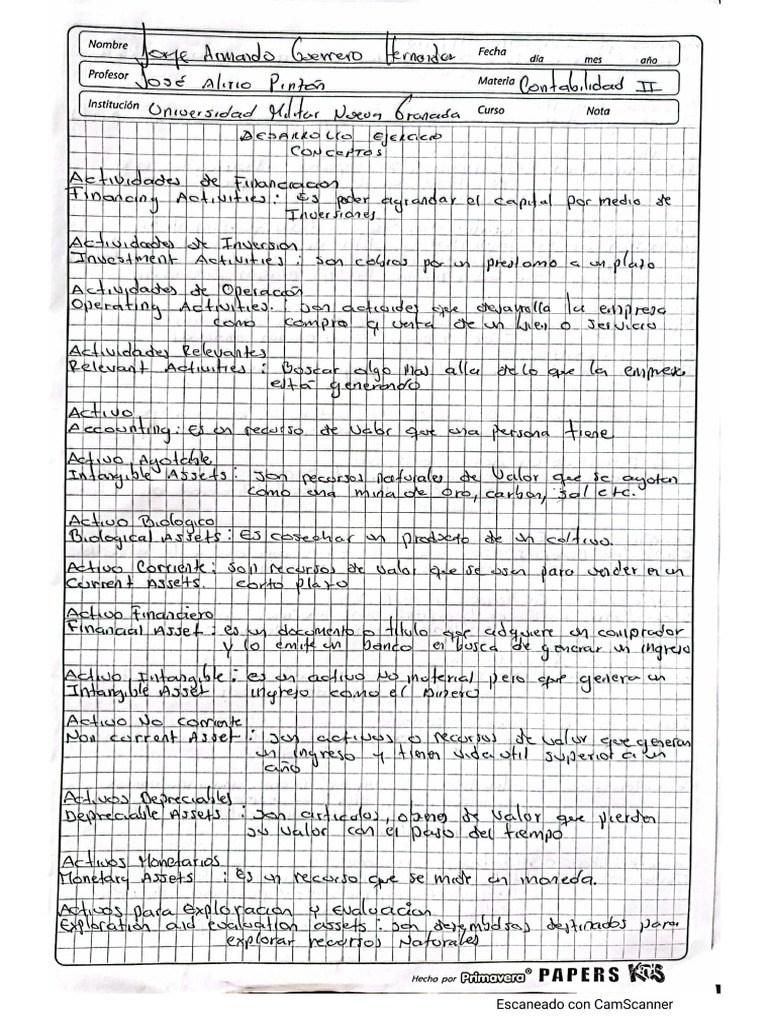 Nombre Jorge Armando Guerrero Hernandez Fecha día mes año
Profesor José Alirio Pinzón Materia Contabilidad II
Institución Universidad Militar Nueva Granada Curso Nota
DESARROLLO EJERCICIO
CONCEPTOS
Actividades de Financiacion
Financing Activities: Es poder agrandar el capital por medio de
Inversiones
Actividades de Inversion
Investment Activities: son cobros por un prestamo a un plazo
Actividades de Operacion
Operating Activities: son activides que desarrolla la empresa
como compra y venta de un bien o servicio
Actividades Relevantes
Relevant Activities: Boscar algo mas alla de lo que la empresa
está generando
Activo
Accounting: Es un recurso de valor que una persona tiene
Activo Agotable
Intangible Assets: son recursos naturales de valor que se agotan
como una mina de oro, carbon, sal etc.
Activo Biologico
Biological Assets: Es cosechar un producto de un coltivo.
Activo Corriente: son recursos de valor que se usan para vender en un
Current Assets. corto plazo
Activo Financiero
Financial Asset: es un documento o titulo que adquiere un comprador
y lo emite un banco en busca de generar un ingreso
Activo Intangible: es un activo No material pero que genera un
Intangible Asset ingreso como el Dinero
Activo No corriente
Non current Asset: son activos o recursos de valor que generan
un ingreso y tienen vida util superior a un
año
Activos Depreciables
Depreciable Assets: son articulos, o bienes de valor que pierden
su valor con el paso del tiempo
Activos Monetarios
Monetary Assets: es un recurso que se mide en moneda.
Activos para exploracion y evaluacion
Exploration and evaluation assets: son desembolsos destinados para
explorar recursos Naturales
Hecho por Primavera® PAPERS KDS
Escaneado con CamScanner